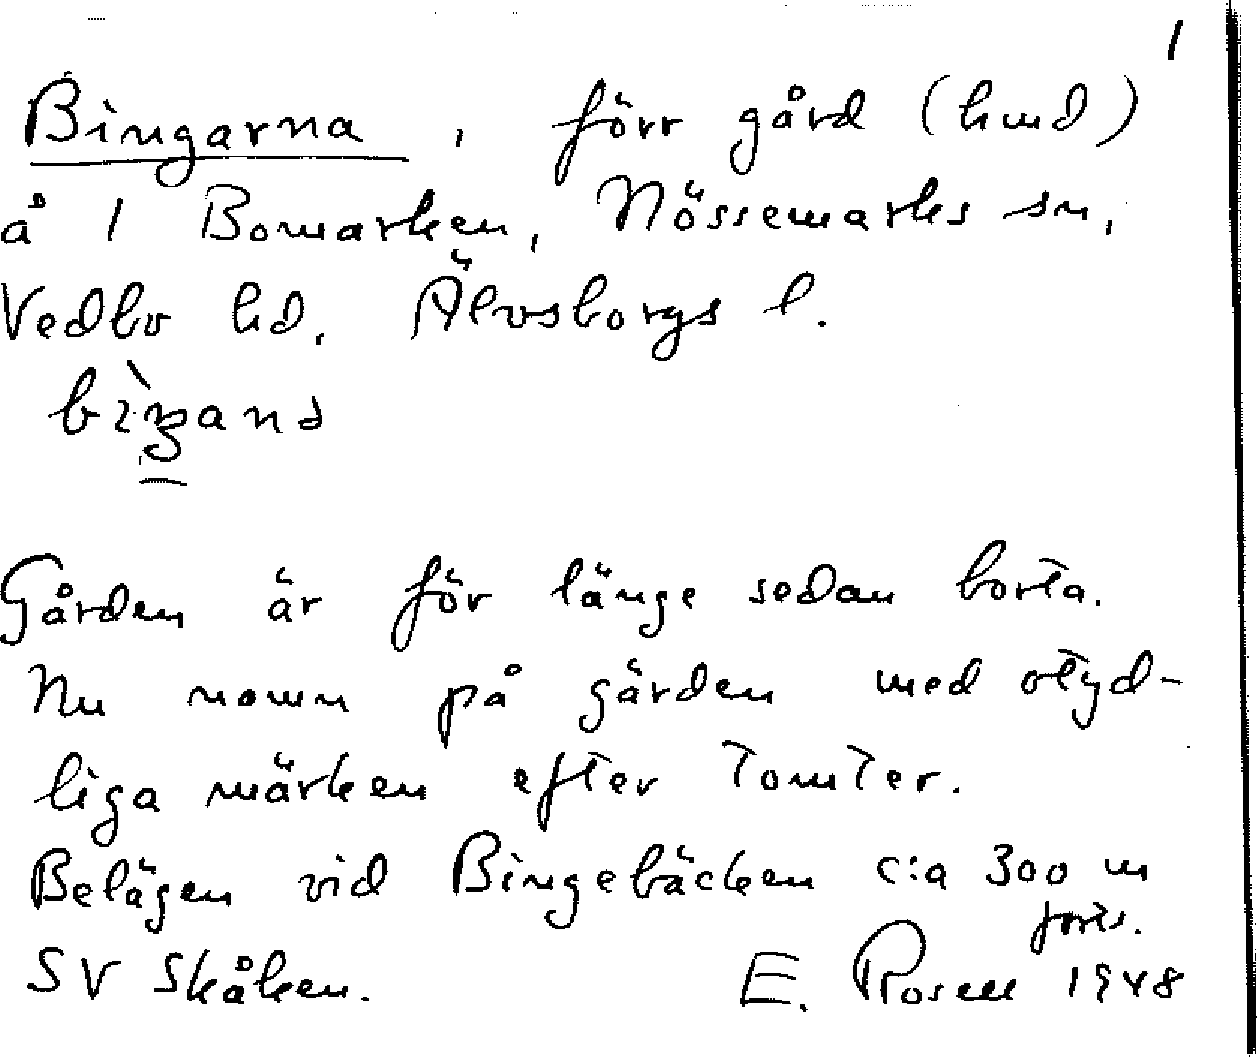 1
Bingarna, förr gård (hmd)
å 1 Bomarken, Nössemarks sn,
Vedbo hd, Älvsborgs l.
Gården är för länge sedan borta.
Nu namn på gärden med otyd-
liga märken efter tomter.
Belägen vid Bingebäcken c:a 300 m
forts.
SV Skåken. E. Rosell 1948